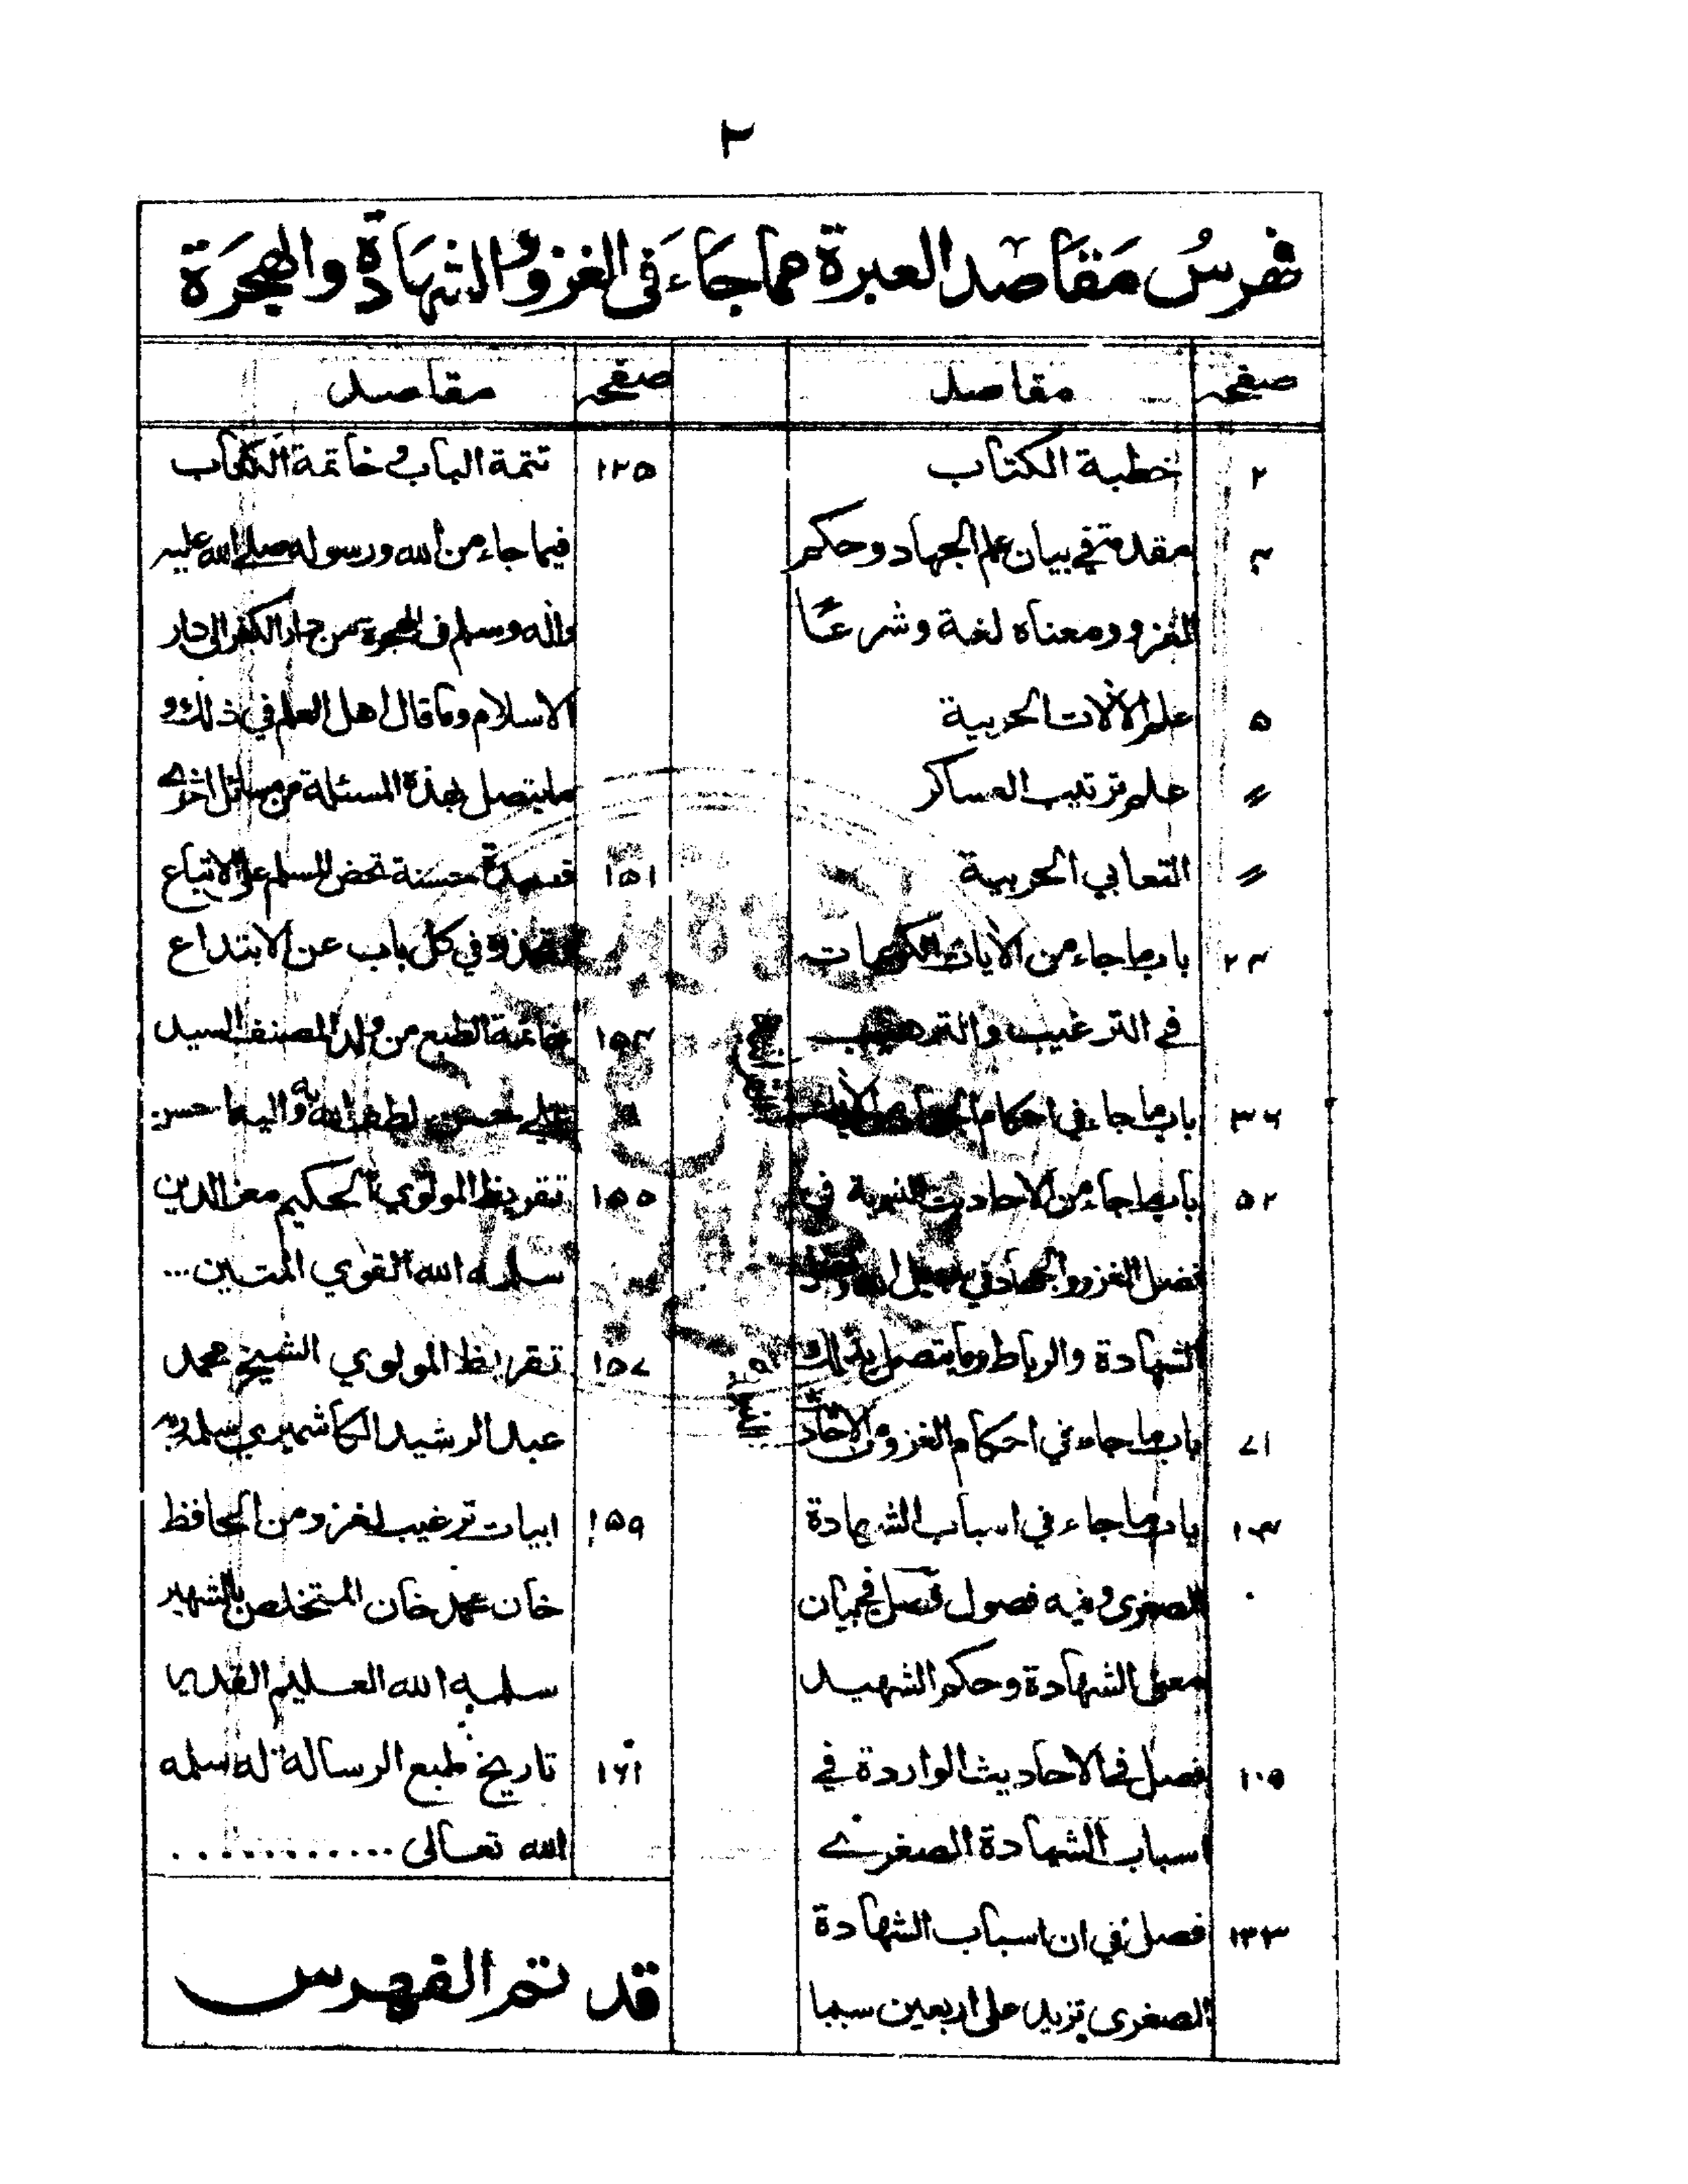 ٢
فهرس مقاصد العبرة مما جاء في الغزو والشهادة والهجرة
صفحه مقاصد
٢ خطبة الكتاب
٣ مقدمة في بيان علم الجهاد وحكم
الغزو ومعناه لغة وشرعًا
٥ علم الآلات الحربية
〃 علم ترتيب العساكر
〃 التعابي الحربية
٢٣ باب ما جاء من الآيات الكريمات
في الترغيب والترهيب
٣٦ باب ما جاء في احكام الجهاد من الآيات
٥٢ باب ما جاء من الاحاديث النبوية في
فضل الغزو والجهاد في سبيل الله و
الشهادة والرباط وما يتصل بذلك
٧١ باب ما جاء في احكام الغزو من الاحاديث
١٠٣ باب ما جاء في اسباب الشهادة
الصغرى وفيه فصول فصل في بيان
معنى الشهادة وحكم الشهيد
١٠٥ فصل في الاحاديث الواردة في
اسباب الشهادة الصغرے
١٣٣ فصل في ان اسباب الشهادة
الصغرى تزيد على اربعين سببا
صفحه مقاصد
١٣٥ تتمة الباب وخاتمة الكتاب
فيما جاء من الله ورسوله صلى الله عليه
وآله وسلم في الهجرة من دار الكفر الى دار
الاسلام وما قال اهل العلم في ذلك و
ما يتصل بهذه المسئلة من مسائل اخرے
١٥١ قصيدة حسنة تحض المسلم على الاتباع
في كل باب عن الابتداع
١٥٣ خاتمة الطبع من ولد المصنف السيد
علي حسن لطف الله به واليه احسن
١٥٥ تقريظ المولوي الحكيم معز الدين
سلمه الله القوي المتين...
١٥٧ تقريظ المولوي الشيخ محمد
عبد الرشيد الكاشميري سلمه ربه
١٥٩ ابيات ترغيب لغزو من الحافظ
خان محمد خان المتخلص بالشهير
سلمه الله العليم القدير
١٦١ تاريخ طبع الرسالة له سلمه
الله تعالى ............
قد تم الفهرس